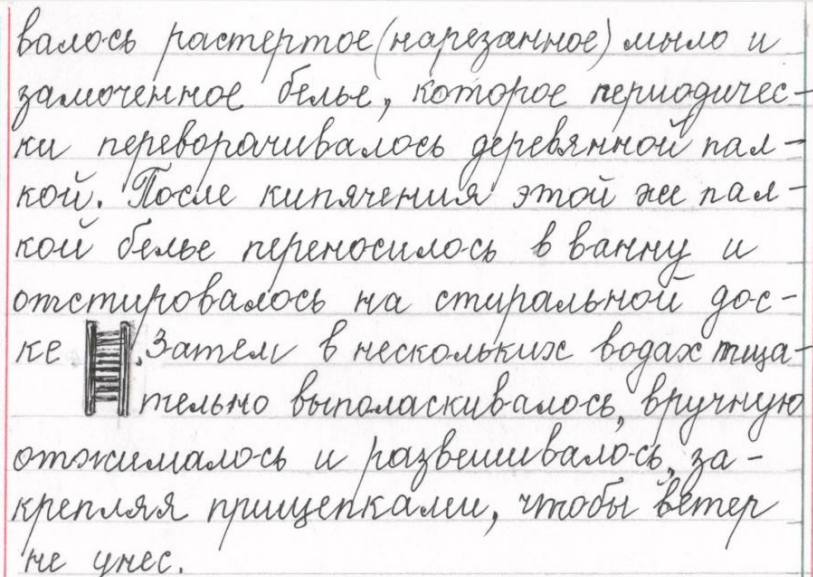 валось растертое (нарезанное) мыло и
замоченное белье, которое периодичес-
ки переворачивалось деревянной пал-
кой. После кипячения этой же пал-
кой белье переносилось в ванну и
отстировалось на стиральной дос-
ке . Затем в нескольких водах тща-
тельно выполаскивалось, вручную
отжималось и развешивалось, за-
крепляя прищепками, чтобы ветер
не унес.